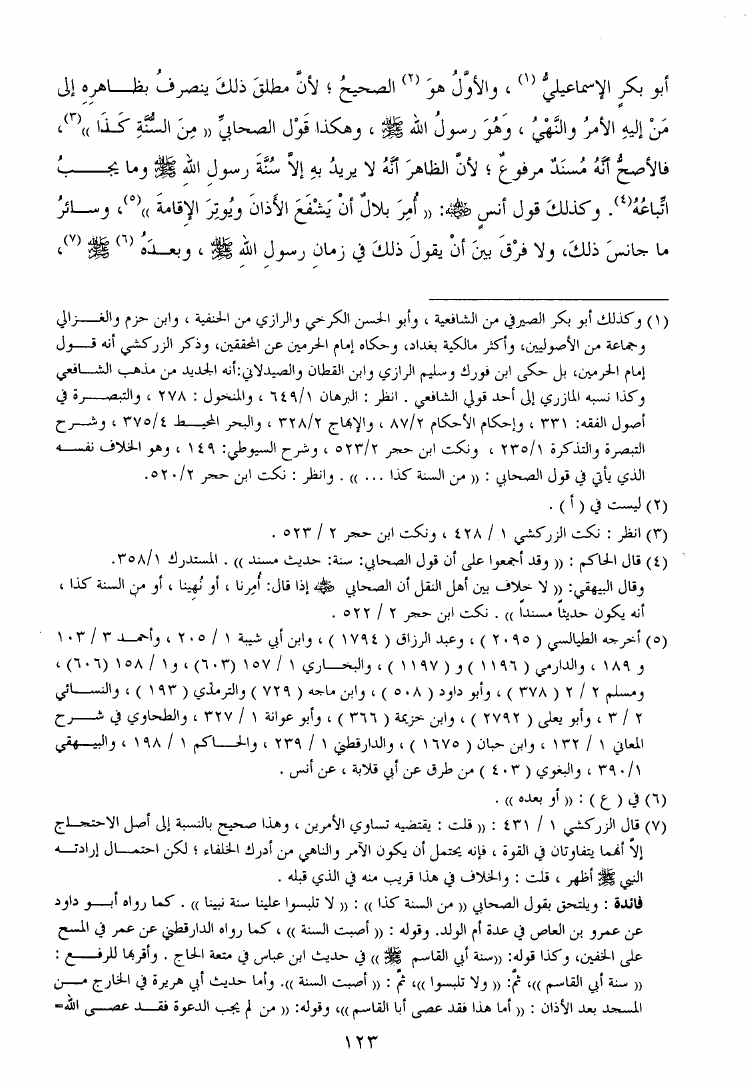 أبو بكرٍ الإسماعيليُّ (١) ، والأوَّلُ هوَ (٢) الصحيحُ ؛ لأنَّ مطلقَ ذلكَ ينصرفُ بظاهرِه إلى
مَنْ إليهِ الأمرُ والنَّهْيُ ، وهُوَ رسولُ الله ﷺ ، وهكذا قَوْل الصحابيِّ « مِنَ السُّنَّةِ كَذَا »(٣)،
فالأصحُّ أنَّهُ مُسنَدٌ مرفوعٌ ؛ لأنَّ الظاهرَ أنَّهُ لا يريدُ بهِ إلاَّ سُنَّةَ رسولِ اللهِ ﷺ وما يجبُ
اتِّباعُهُ(٤). وكذلكَ قول أنسٍ ﷺ: « أُمِرَ بلالٌ أنْ يَشْفَعَ الأذانَ ويُوتِرَ الإقامةَ »(٥)، وسائرُ
ما جانسَ ذلكَ، ولا فرْقَ بينَ أنْ يقولَ ذلكَ في زمانِ رسولِ اللهِ ﷺ ، وبعدَهُ (٦) ﷺ (٧)،
(١) وكذلك أبو بكر الصيرفي من الشافعية ، وأبو الحسن الكرخي والرازي من الحنفية ، وابن حزم والغزالي
وجماعة من الأصوليين، وأكثر مالكية بغداد، وحكاه إمام الحرمين عن المحققين، وذكر الزركشي أنه قول
إمام الحرمين، بل حكى ابن فورك وسليم الرازي وابن القطان والصيدلاني:أنه الجديد من مذهب الشافعي
وكذا نسبه المازري إلى أحد قولي الشافعي . انظر : البرهان ٦٤٩/١ ، والمنخول : ٢٧٨ ، والتبصرة في
أصول الفقه: ٣٣١ ، وإحكام الأحكام ٨٧/٢ ، والإبهاج ٣٢٨/٢ ، والبحر المحيط ٣٧٥/٤ ، وشرح
التبصرة والتذكرة ٢٣٥/١ ، ونكت ابن حجر ٥٢٣/٢ ، وشرح السيوطي: ١٤٩ ، وهو الخلاف نفسه
الذي يأتي في قول الصحابي : « من السنة كذا ... » . وانظر : نكت ابن حجر ٥٢٠/٢.
(٢) ليست في ( أ ) .
(٣) انظر : نكت الزركشي ١ / ٤٢٨ ، ونكت ابن حجر ٢ / ٥٢٣ .
(٤) قال الحاكم : « وقد أجمعوا على أن قول الصحابي: سنة: حديث مسند » . المستدرك ٣٥٨/١.
وقال البيهقي: « لا خلاف بين أهل النقل أن الصحابي ﷺ إذا قال: أُمِرنا ، أو نُهينا ، أو من السنة كذا ،
أنه يكون حديثاً مسنداً » . نكت ابن حجر ٢ / ٥٢٢ .
(٥) أخرجه الطيالسي ( ٢٠٩٥ ) ، وعبد الرزاق ( ١٧٩٤ ) ، وابن أبي شيبة ١ / ٢٠٥ ، وأحمد ٣ / ١٠٣
و ١٨٩ ، والدارمي ( ١١٩٦ ) و ( ١١٩٧ ) ، والبخاري ١ / ١٥٧ (٦٠٣)، و١ / ١٥٨ (٦٠٦) ،
ومسلم ٢ / ٢ ( ٣٧٨ ) ، وأبو داود ( ٥٠٨ ) ، وابن ماجه ( ٧٢٩ ) والترمذي ( ١٩٣ ) ، والنسائي
٢ / ٣ ، وأبو يعلى ( ٢٧٩٢ ) ، وابن خزيمة ( ٣٦٦ ) ، وأبو عوانة ١ / ٣٢٧ ، والطحاوي في شرح
المعاني ١ / ١٣٢ ، وابن حبان ( ١٦٧٥ ) ، والدارقطني ١ / ٢٣٩ ، والحاكم ١ / ١٩٨ ، والبيهقي
٣٩٠/١ ، والبغوي ( ٤٠٣ ) من طرق عن أبي قلابة ، عن أنس .
(٦) في ( ع ) : « أو بعده » .
(٧) قال الزركشي ١ / ٤٣١ : « قلت : يقتضيه تساوي الأمرين ، وهذا صحيح بالنسبة إلى أصل الاحتجاج
إلاَّ أنهما يتفاوتان في القوة ، فإنه يحتمل أن يكون الآمر والناهي من أدرك الخلفاء ؛ لكن احتمال إرادته
النبي ﷺ أظهر ، قلت : والخلاف في هذا قريب منه في الذي قبله .
فائدة : ويلتحق بقول الصحابي « من السنة كذا » : « لا تلبسوا علينا سنة نبينا » . كما رواه أبو داود
عن عمرو بن العاص في عدة أم الولد. وقوله : « أصبت السنة » ، كما رواه الدارقطني عن عمر في المسح
على الخفين، وكذا قوله: «سنة أبي القاسم ﷺ » في حديث ابن عباس في متعة الحاج . وأقربها للرفع :
« سنة أبي القاسم »، ثمَّ: « ولا تلبسوا »، ثمَّ : « أصبت السنة ». وأما حديث أبي هريرة في الخارج من
المسجد بعد الأذان : « أما هذا فقد عصى أبا القاسم »، وقوله: « من لم يجب الدعوة فقد عصى الله=
١٢٣